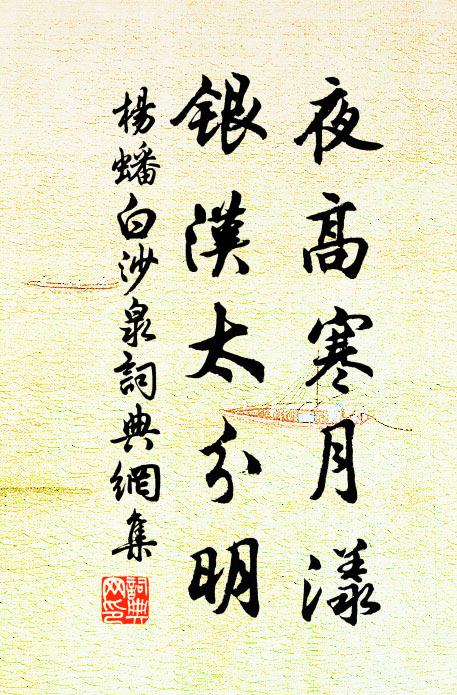 夜高寒月漾
銀漢太分明
楊蟠白沙泉詞典網集
詞典
网印